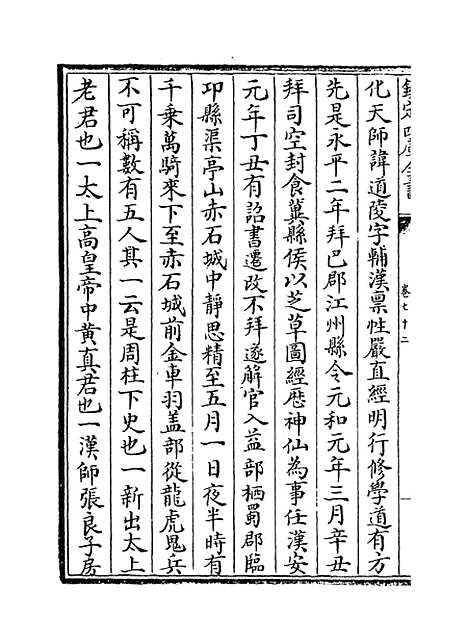 欽定四庫全書
卷七十二
一
化天師諱道陵字輔漢禀性嚴直經明行修學道有方
先是永平二年拜巴郡江州縣令元和元年三月辛丑
拜司空封食冀縣侯以芝草圖經歴神仙為事任漢安
元年丁丑有詔書遷改不拜遂解官入益部栖蜀郡臨
卭縣渠亭山赤石城中静思精至五月一日夜半時有
千乗萬騎來下至赤石城前金車羽盖部從龍虎鬼兵
不可稱數有五人其一云是周柱下史也一新出太上
老君也一太上高皇帝中黄真君也一漢師張良子房